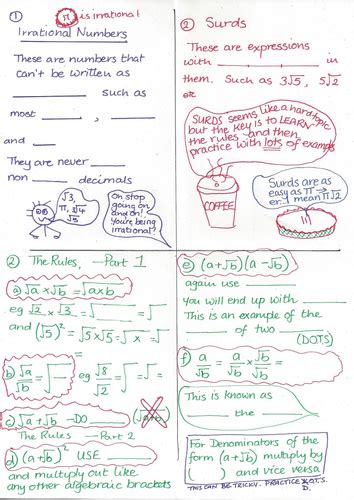 ① π is irrational
Irrational Numbers
These are numbers that
can't be written as
________ such as
most ________, ________
and ____
They are never ____
non ____ decimals
√3,
π, ∛4
√5
Oh stop
going on
and on!
You're being
irrational!
② Surds
These are expressions
with ________ in
them. Such as 3√5, 5√2
etc
SURDS seems like a hard topic
but the key is to LEARN
the rules and then
practice with lots of examples
COFFEE
Surds are as
easy as π →
er.. I mean π√2
② The Rules, —Part 1
a) √a × √b = √a×b
eg √2 × √3 = √ = √
and (√5)² = √5×√5 = √ = √
b) √a/√b = √ eg √8/√2 = √ = √
c) √a + √b —DO ____ (√a+b)
The Rules — Part 2
d) (a+√b)² USE ____
and multiply out like
any other algebraic brackets
e) (a+√b)(a-√b)
again use ____
You will end up with ____
This is an example of the
____ of two ____
(DOTS)
f) a/√b = a/√b × √b/√b = ____
This is known as
____ the ____
For Denominators of the
form (a+√b) multiply by
( ) and vice versa
THIS CAN BE TRICKY. PRACTICE